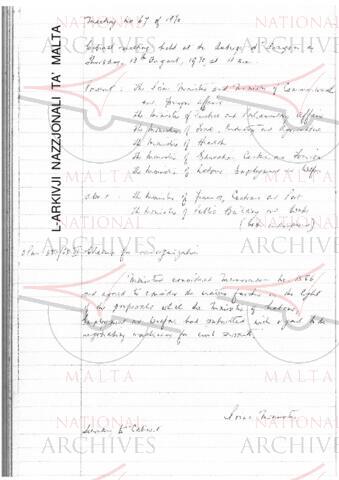 L-ARKIVJI NAZZJONALI TA' MALTA
NATIONAL
ARCHIVES
MALTA
Meeting No 67 of 1970
Cabinet meeting held at the Auberge d'Aragon on
Thursday, 13th August, 1970, at 11 a.m.
Present: The Prime Minister and Minister of Commonwealth
and Foreign Affairs
the Minister of Justice and Parliamentary Affairs
the Minister of Trade, Industry and Agriculture
the Minister of Health
the Minister of Education, Culture and Tourism
the Minister of Labour, Employment and Welfare
the Minister of Finance, Customs and Port
the Minister of Public Building and Works
for reorganization
Ministers considered Memorandum No
and agreed to consider the matter further in the light
of the proposals which the Minister of Labour,
Employment and Welfare had submitted with regard to the
negotiating machinery for civil servants.
Prime Minister
Secretary to Cabinet